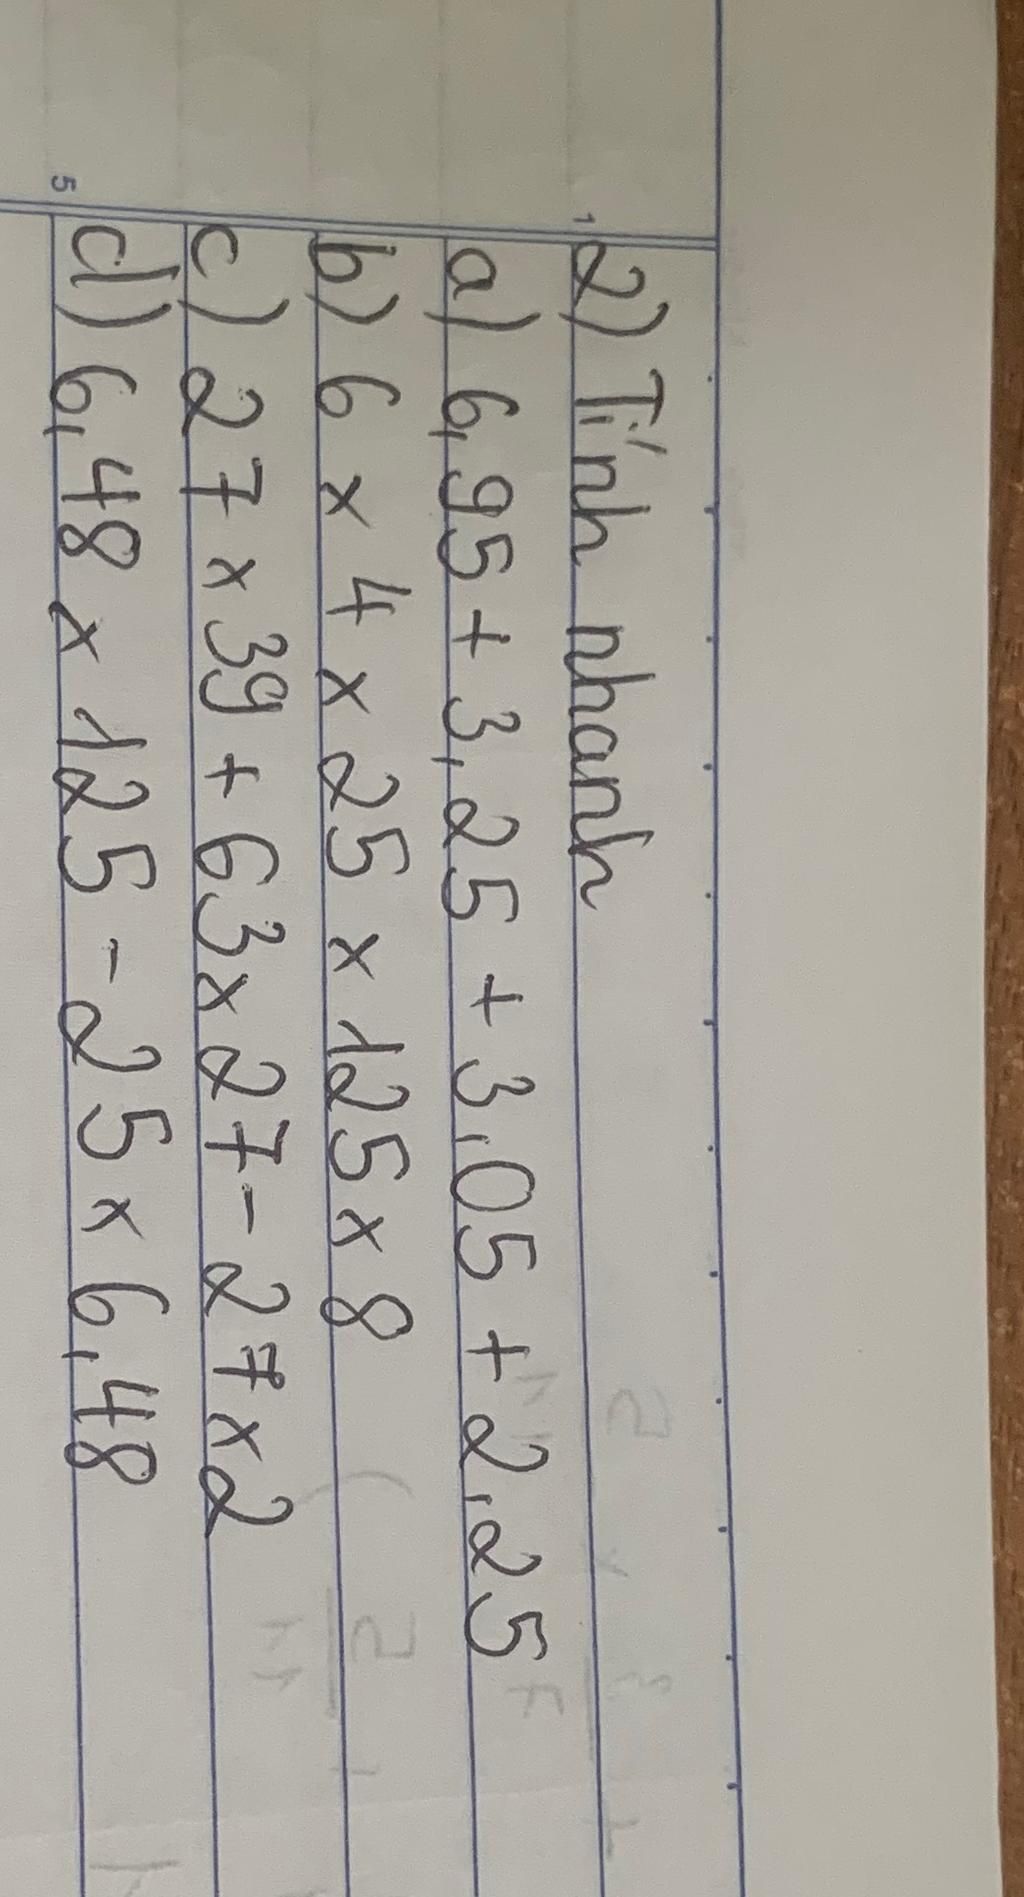 2) Tính nhanh
a) 6,95 + 3,25 + 3,05 + 2,25
b) 6 x 4 x 25 x 125 x 8
c) 27 x 39 + 63 x 27 - 27 x 2
d) 6,48 x 125 - 25 x 6,48